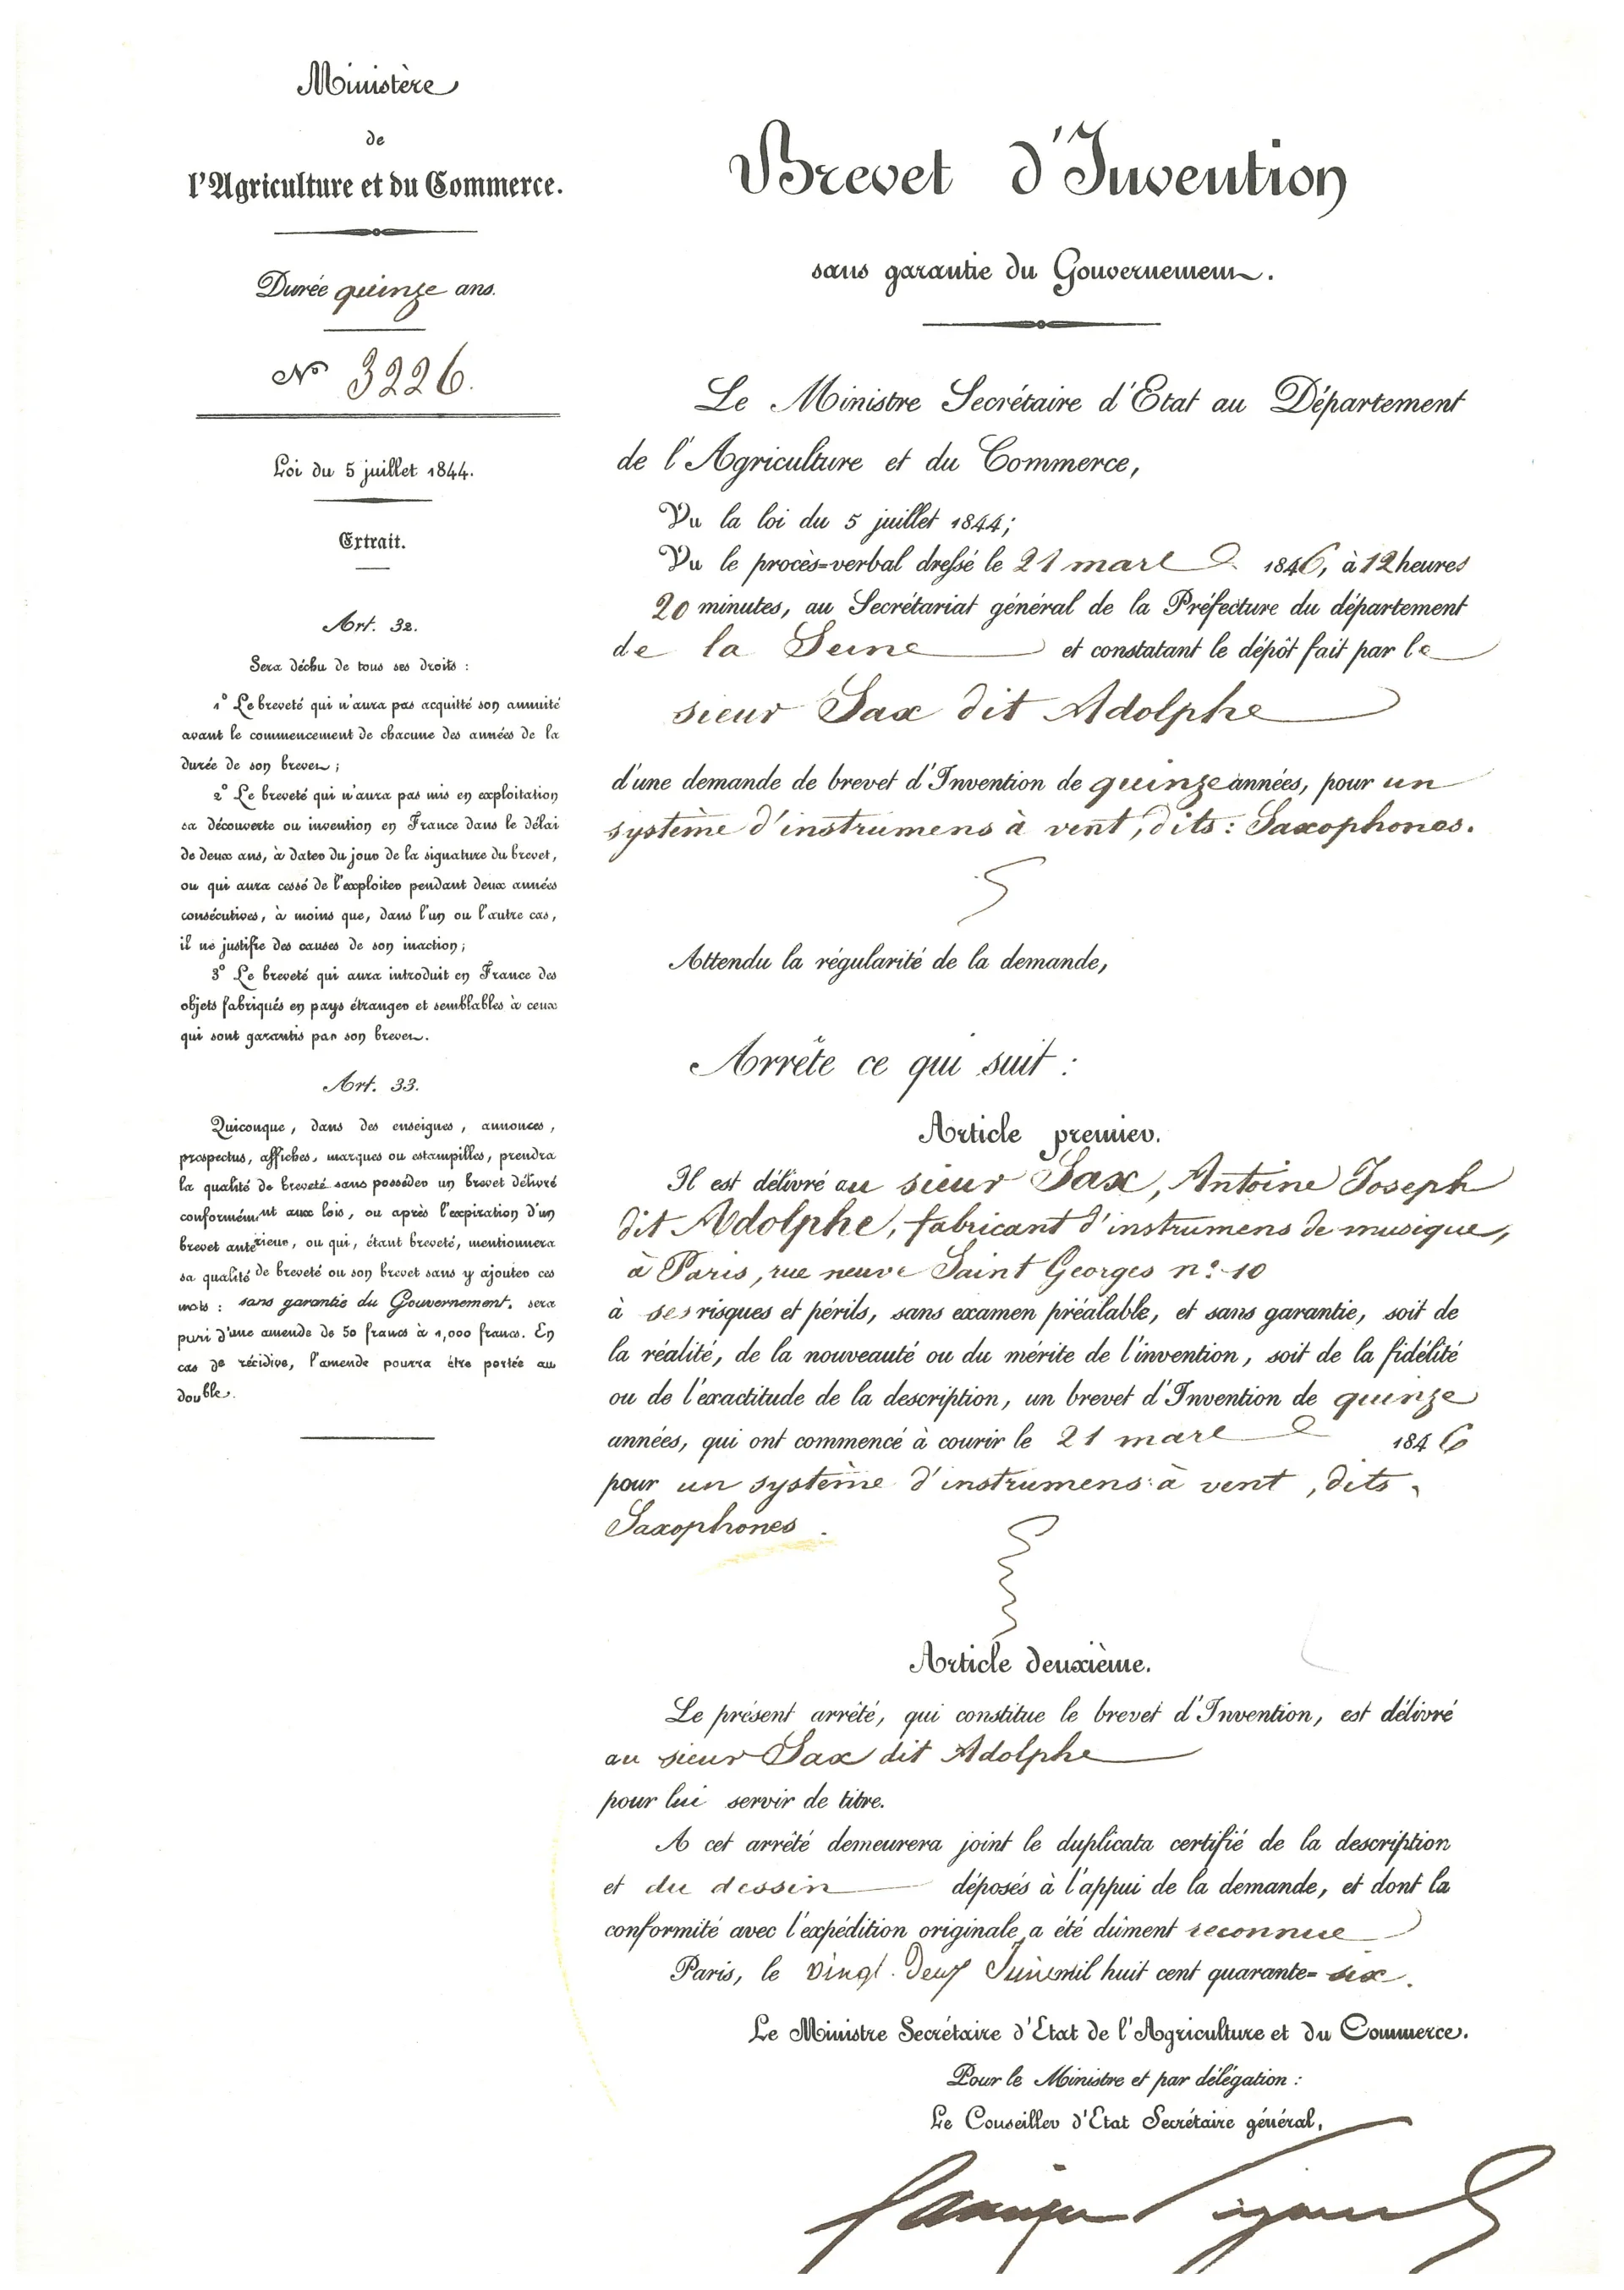 Ministère
de
l'Agriculture et du Commerce.
Durée quinze ans.
N° 3226.
Loi du 5 juillet 1844.
Extrait.
Art. 32.
Sera déchu de tous ses droits :
1° Le breveté qui n'aura pas acquitté son annuité
avant le commencement de chacune des années de la
durée de son brevet ;
2° Le breveté qui n'aura pas mis en exploitation
sa découverte ou invention en France dans le délai
de deux ans, à dater du jour de la signature du brevet,
ou qui aura cessé de l'exploiter pendant deux années
consécutives, à moins que, dans l'un ou l'autre cas,
il ne justifie des causes de son inaction ;
3° Le breveté qui aura introduit en France des
objets fabriqués en pays étranger et semblables à ceux
qui sont garantis par son brevet.
Art. 33.
Quiconque, dans des enseignes, annonces,
prospectus, affiches, marques ou estampilles, prendra
la qualité de breveté sans posséder un brevet délivré
conformément aux lois, ou après l'expiration d'un
brevet antérieur, ou qui, étant breveté, mentionnera
sa qualité de breveté ou son brevet sans y ajouter ces
mots : sans garantie du Gouvernement, sera
puni d'une amende de 50 francs à 1,000 francs. En
cas de récidive, l'amende pourra être portée au
double.
Brevet d'Invention
sans garantie du Gouvernement.
Le Ministre Secrétaire d'Etat au Département
de l'Agriculture et du Commerce,
Vu la loi du 5 juillet 1844;
Vu le procès-verbal dressé le 21 mars 1846, à 12 heures
20 minutes, au Secrétariat général de la Préfecture du département
de la Seine et constatant le dépôt fait par le
sieur Sax dit Adolphe
d'une demande de brevet d'Invention de quinze années, pour un
système d'instrumens à vent, dits : Saxophones.
Attendu la régularité de la demande,
Arrête ce qui suit :
Article premier.
Il est délivré au sieur Sax, Antoine Joseph
dit Adolphe, fabricant d'instrumens de musique,
à Paris, rue neuve Saint Georges n° 10
à ses risques et périls, sans examen préalable, et sans garantie, soit de
la réalité, de la nouveauté ou du mérite de l'invention, soit de la fidélité
ou de l'exactitude de la description, un brevet d'Invention de quinze
années, qui ont commencé à courir le 21 mars 1846
pour un système d'instrumens à vent, dits
Saxophones.
Article deuxième.
Le présent arrêté, qui constitue le brevet d'Invention, est délivré
au sieur Sax dit Adolphe
pour lui servir de titre.
A cet arrêté demeurera joint le duplicata certifié de la description
et du dessin déposés à l'appui de la demande, et dont la
conformité avec l'expédition originale a été dûment reconnue
Paris, le vingt-deux Juin mil huit cent quarante-six.
Le Ministre Secrétaire d'Etat de l'Agriculture et du Commerce.
Pour le Ministre et par délégation :
Le Conseiller d'Etat Secrétaire général,